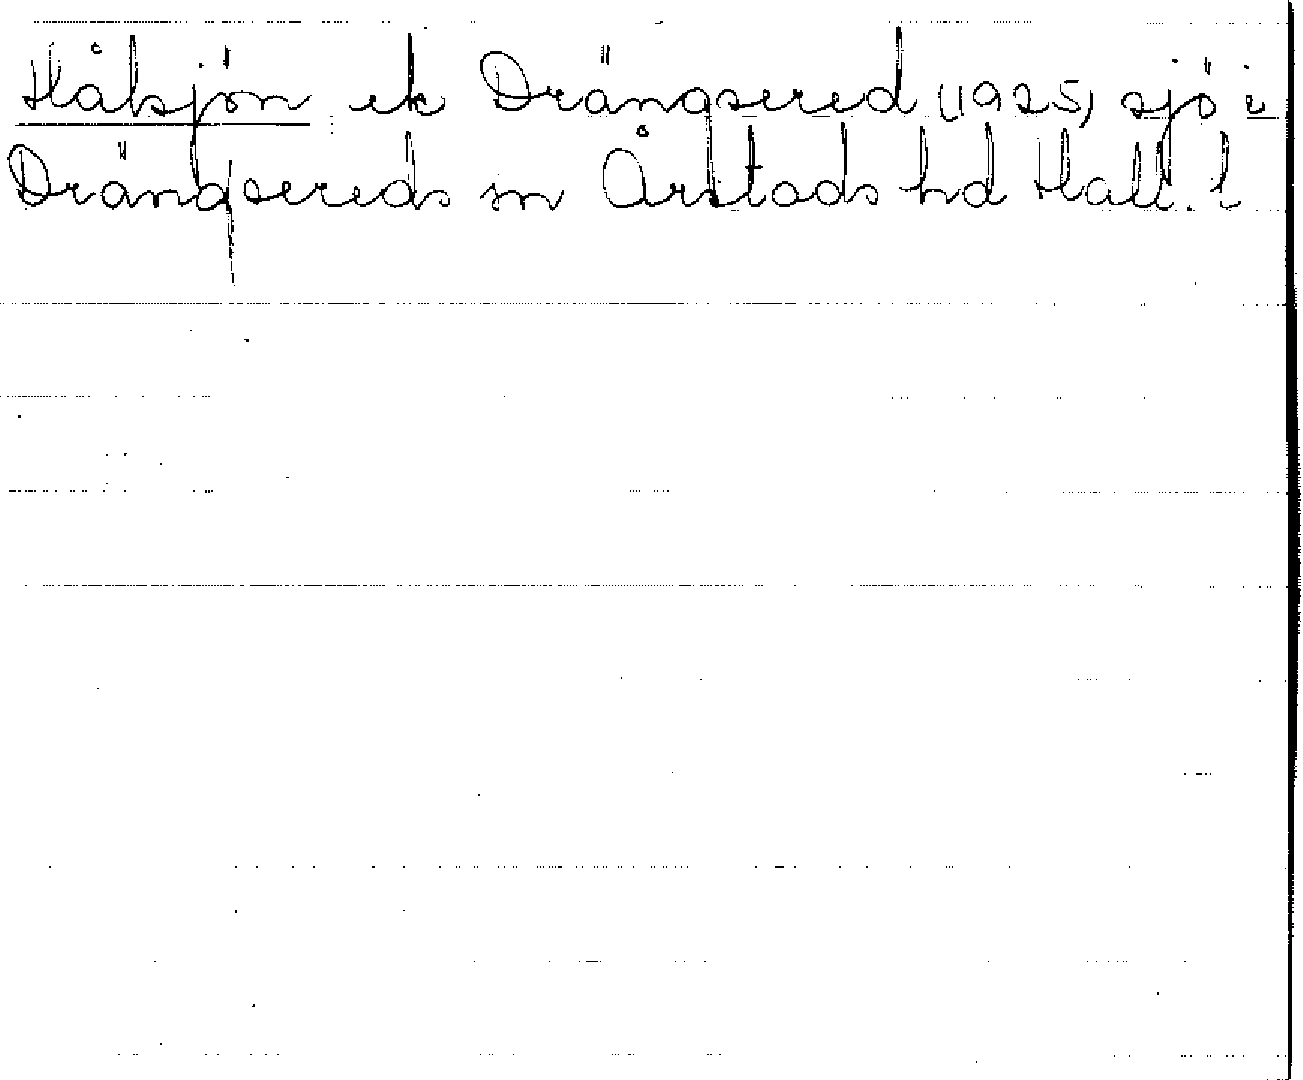 Håksjön ek Drängsered (1925) sjö i
Drängsereds sn Årstads hd Hall. l